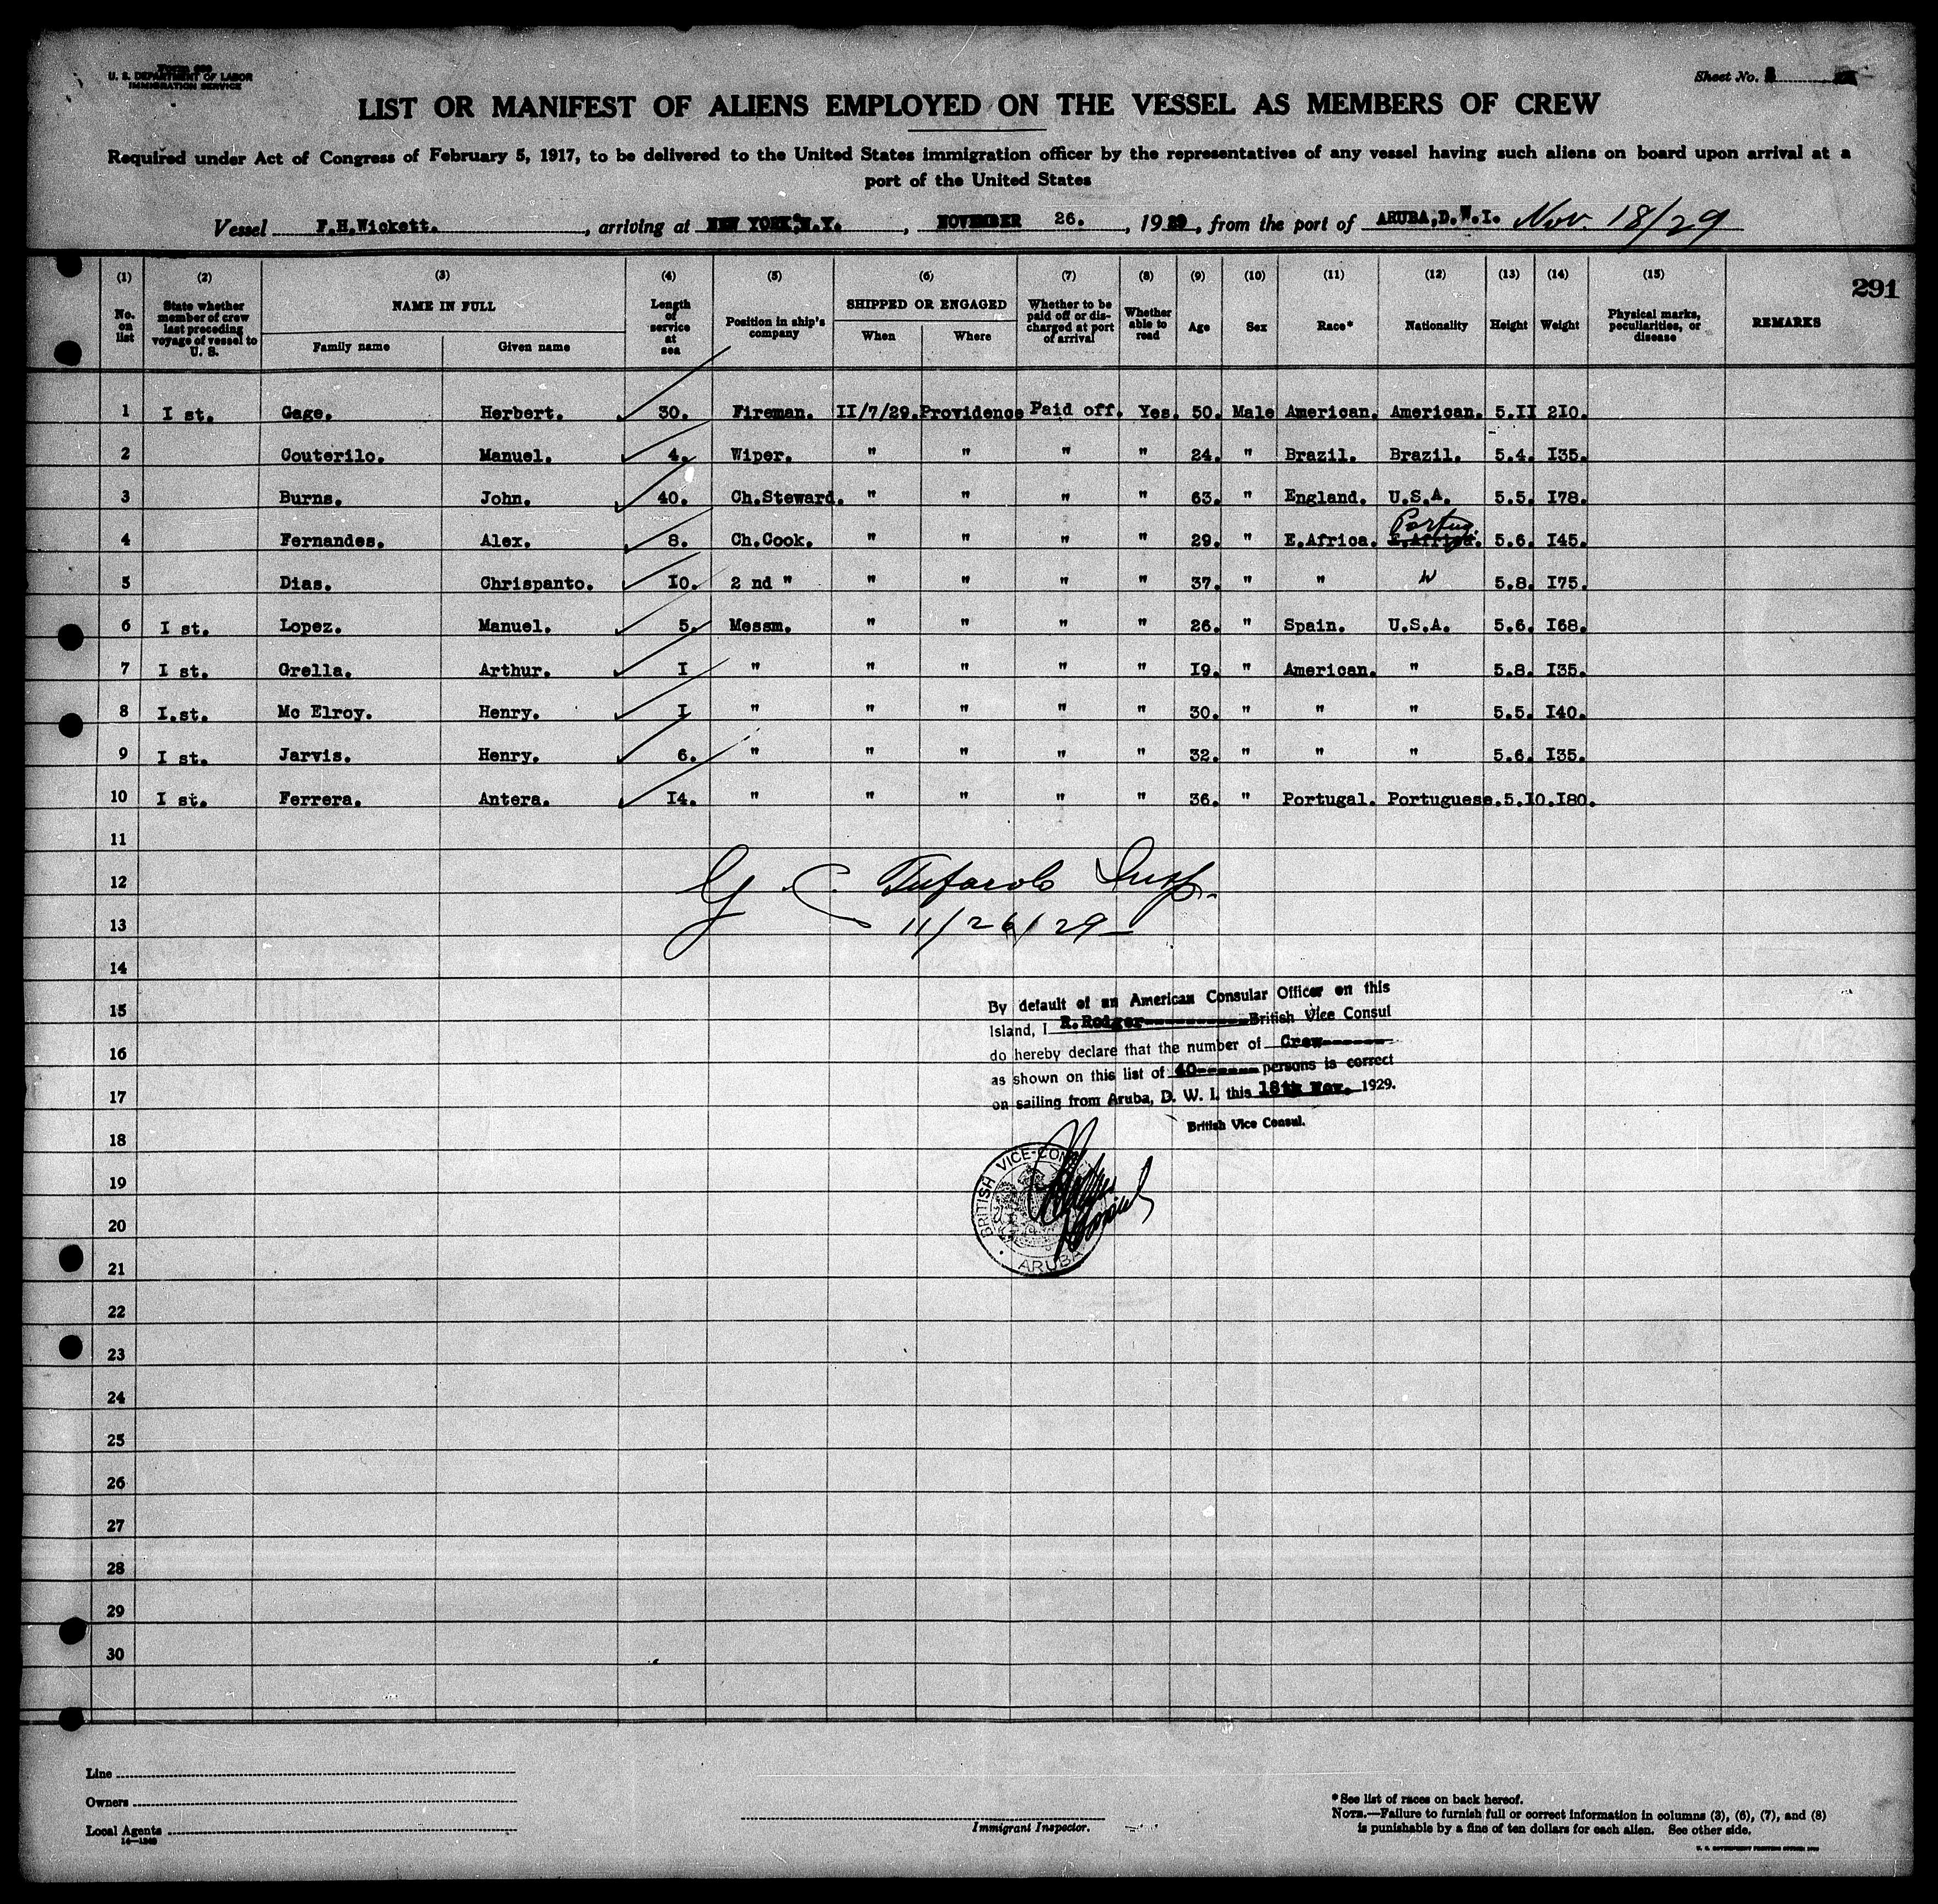 U. S. DEPARTMENT OF LABOR
IMMIGRATION SERVICE
Sheet No.
LIST OR MANIFEST OF ALIENS EMPLOYED ON THE VESSEL AS MEMBERS OF CREW
Required under Act of Congress of February 5, 1917, to be delivered to the United States immigration officer by the representatives of any vessel having such aliens on board upon arrival at a
port of the United States
Vessel F.H.Wickett. , arriving at NEW YORK,N.Y. , NOVEMBER 26. , 1929 , from the port of ARUBA,D.W.I. Nov. 18/29
291
(1) (2) (3) (4) (5) (6) (7) (8) (9) (10) (11) (12) (13) (14) (15)
No. on list State whether member of crew last preceding voyage of vessel to U. S. NAME IN FULL Length of service at sea Position in ship's company SHIPPED OR ENGAGED Whether to be paid off or discharged at port of arrival Whether able to read Age Sex Race* Nationality Height Weight Physical marks, peculiarities, or disease REMARKS
Family name Given name When Where
1 I st. Gage. Herbert. 30. Fireman. II/7/29. Providence Paid off. Yes. 50. Male American. American. 5.II 210.
2 Couterilo. Manuel. 4. Wiper. " " " " 24. " Brazil. Brazil. 5.4. I35.
3 Burns. John. 40. Ch.Steward. " " " " 63. " England. U.S.A. 5.5. I78.
Portug.
4 Fernandes. Alex. 8. Ch.Cook. " " " " 29. " E.Africa. E.Africa. 5.6. I45.
5 Dias. Chrispanto. IO. 2 nd " " " " " 37. " " " 5.8. I75.
6 I st. Lopez. Manuel. 5. Messm. " " " " 26. " Spain. U.S.A. 5.6. I68.
7 I st. Grella. Arthur. I " " " " " I9. " American. " 5.8. I35.
8 I.st. Mc Elroy. Henry. I " " " " " 30. " " " 5.5. I40.
9 I st. Jarvis. Henry. 6. " " " " " 32. " " " 5.6. I35.
10 I st. Ferrera. Antera. I4. " " " " " 36. " Portugal. Portuguese. 5.I0. I80.
11
12
G C Tufarolo Insp.
13
11/26/29
14
By default of an American Consular Officer on this
15
Island, I R.Rodger----------British Vice Consul
16
do hereby declare that the number of Crew------
as shown on this list of 40------persons is correct
17
on sailing from Aruba, D. W. I. this 18th Nov. 1929.
British Vice Consul.
18
BRITISH VICE-CON
19
20
ARUBA
21
22
23
24
25
26
27
28
29
30
Line
Owners
Local Agents
Immigrant Inspector.
*See list of races on back hereof.
NOTE.—Failure to furnish full or correct information in columns (3), (6), (7), and (8)
is punishable by a fine of ten dollars for each alien. See other side.